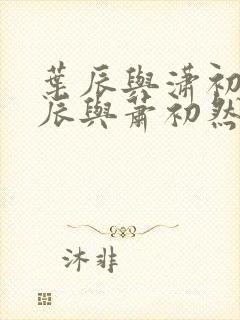 葉辰與瀟初
辰與蕭初然
沐非